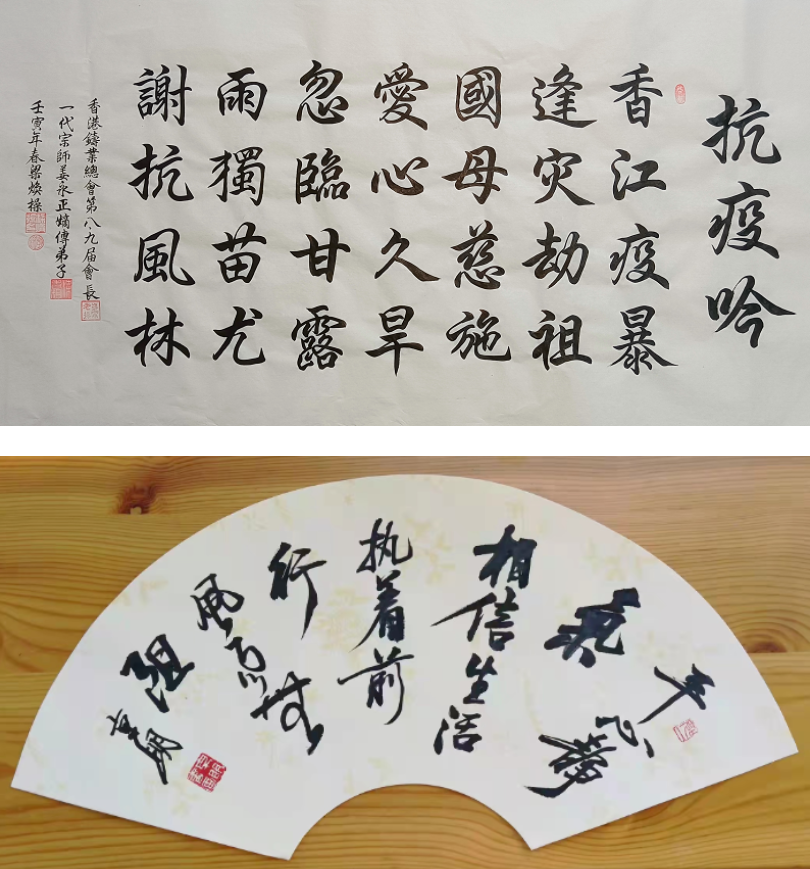 抗疫吟
香江疫暴
逢灾劫祖
國母慈施
愛心久旱
忽臨甘露
雨獨苗尤
謝抗風林
香港鑄業總會第八、九届會長
一代宗師姜永正嫡傳弟子
壬寅年春梁焕操
相信生活
执着前
行
風雨無
阻